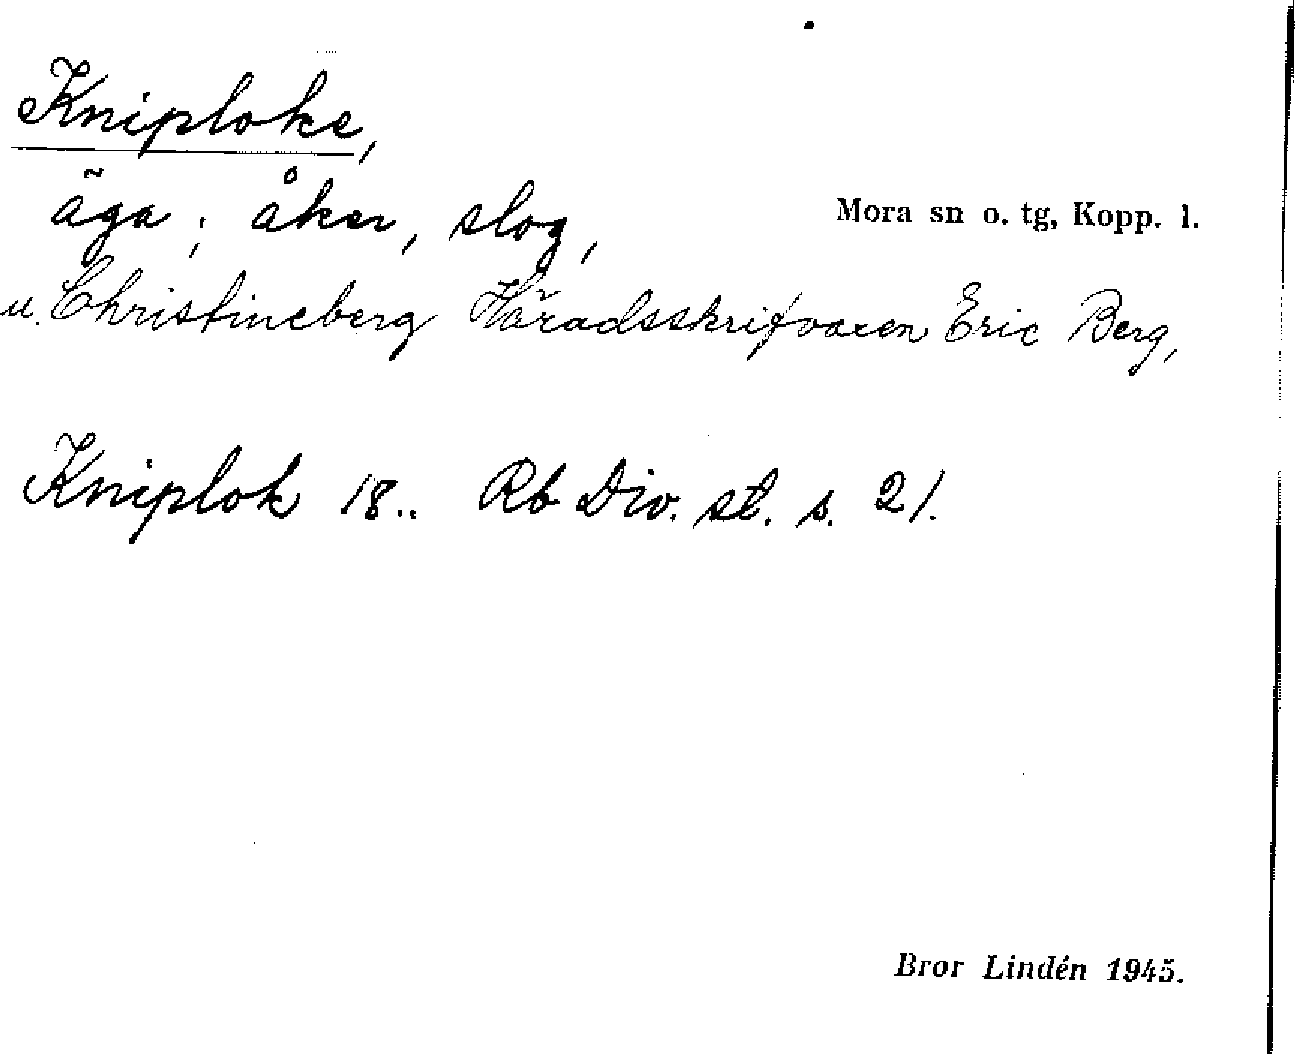 Kniploke,
äga; åker, slog,
Mora sn o. tg, Kopp. l.
u. Christineberg Häradsskrifvaren Eric Berg,
Kniplok 18.. Rb Div. st. s. 21.
Bror Lindén 1945.